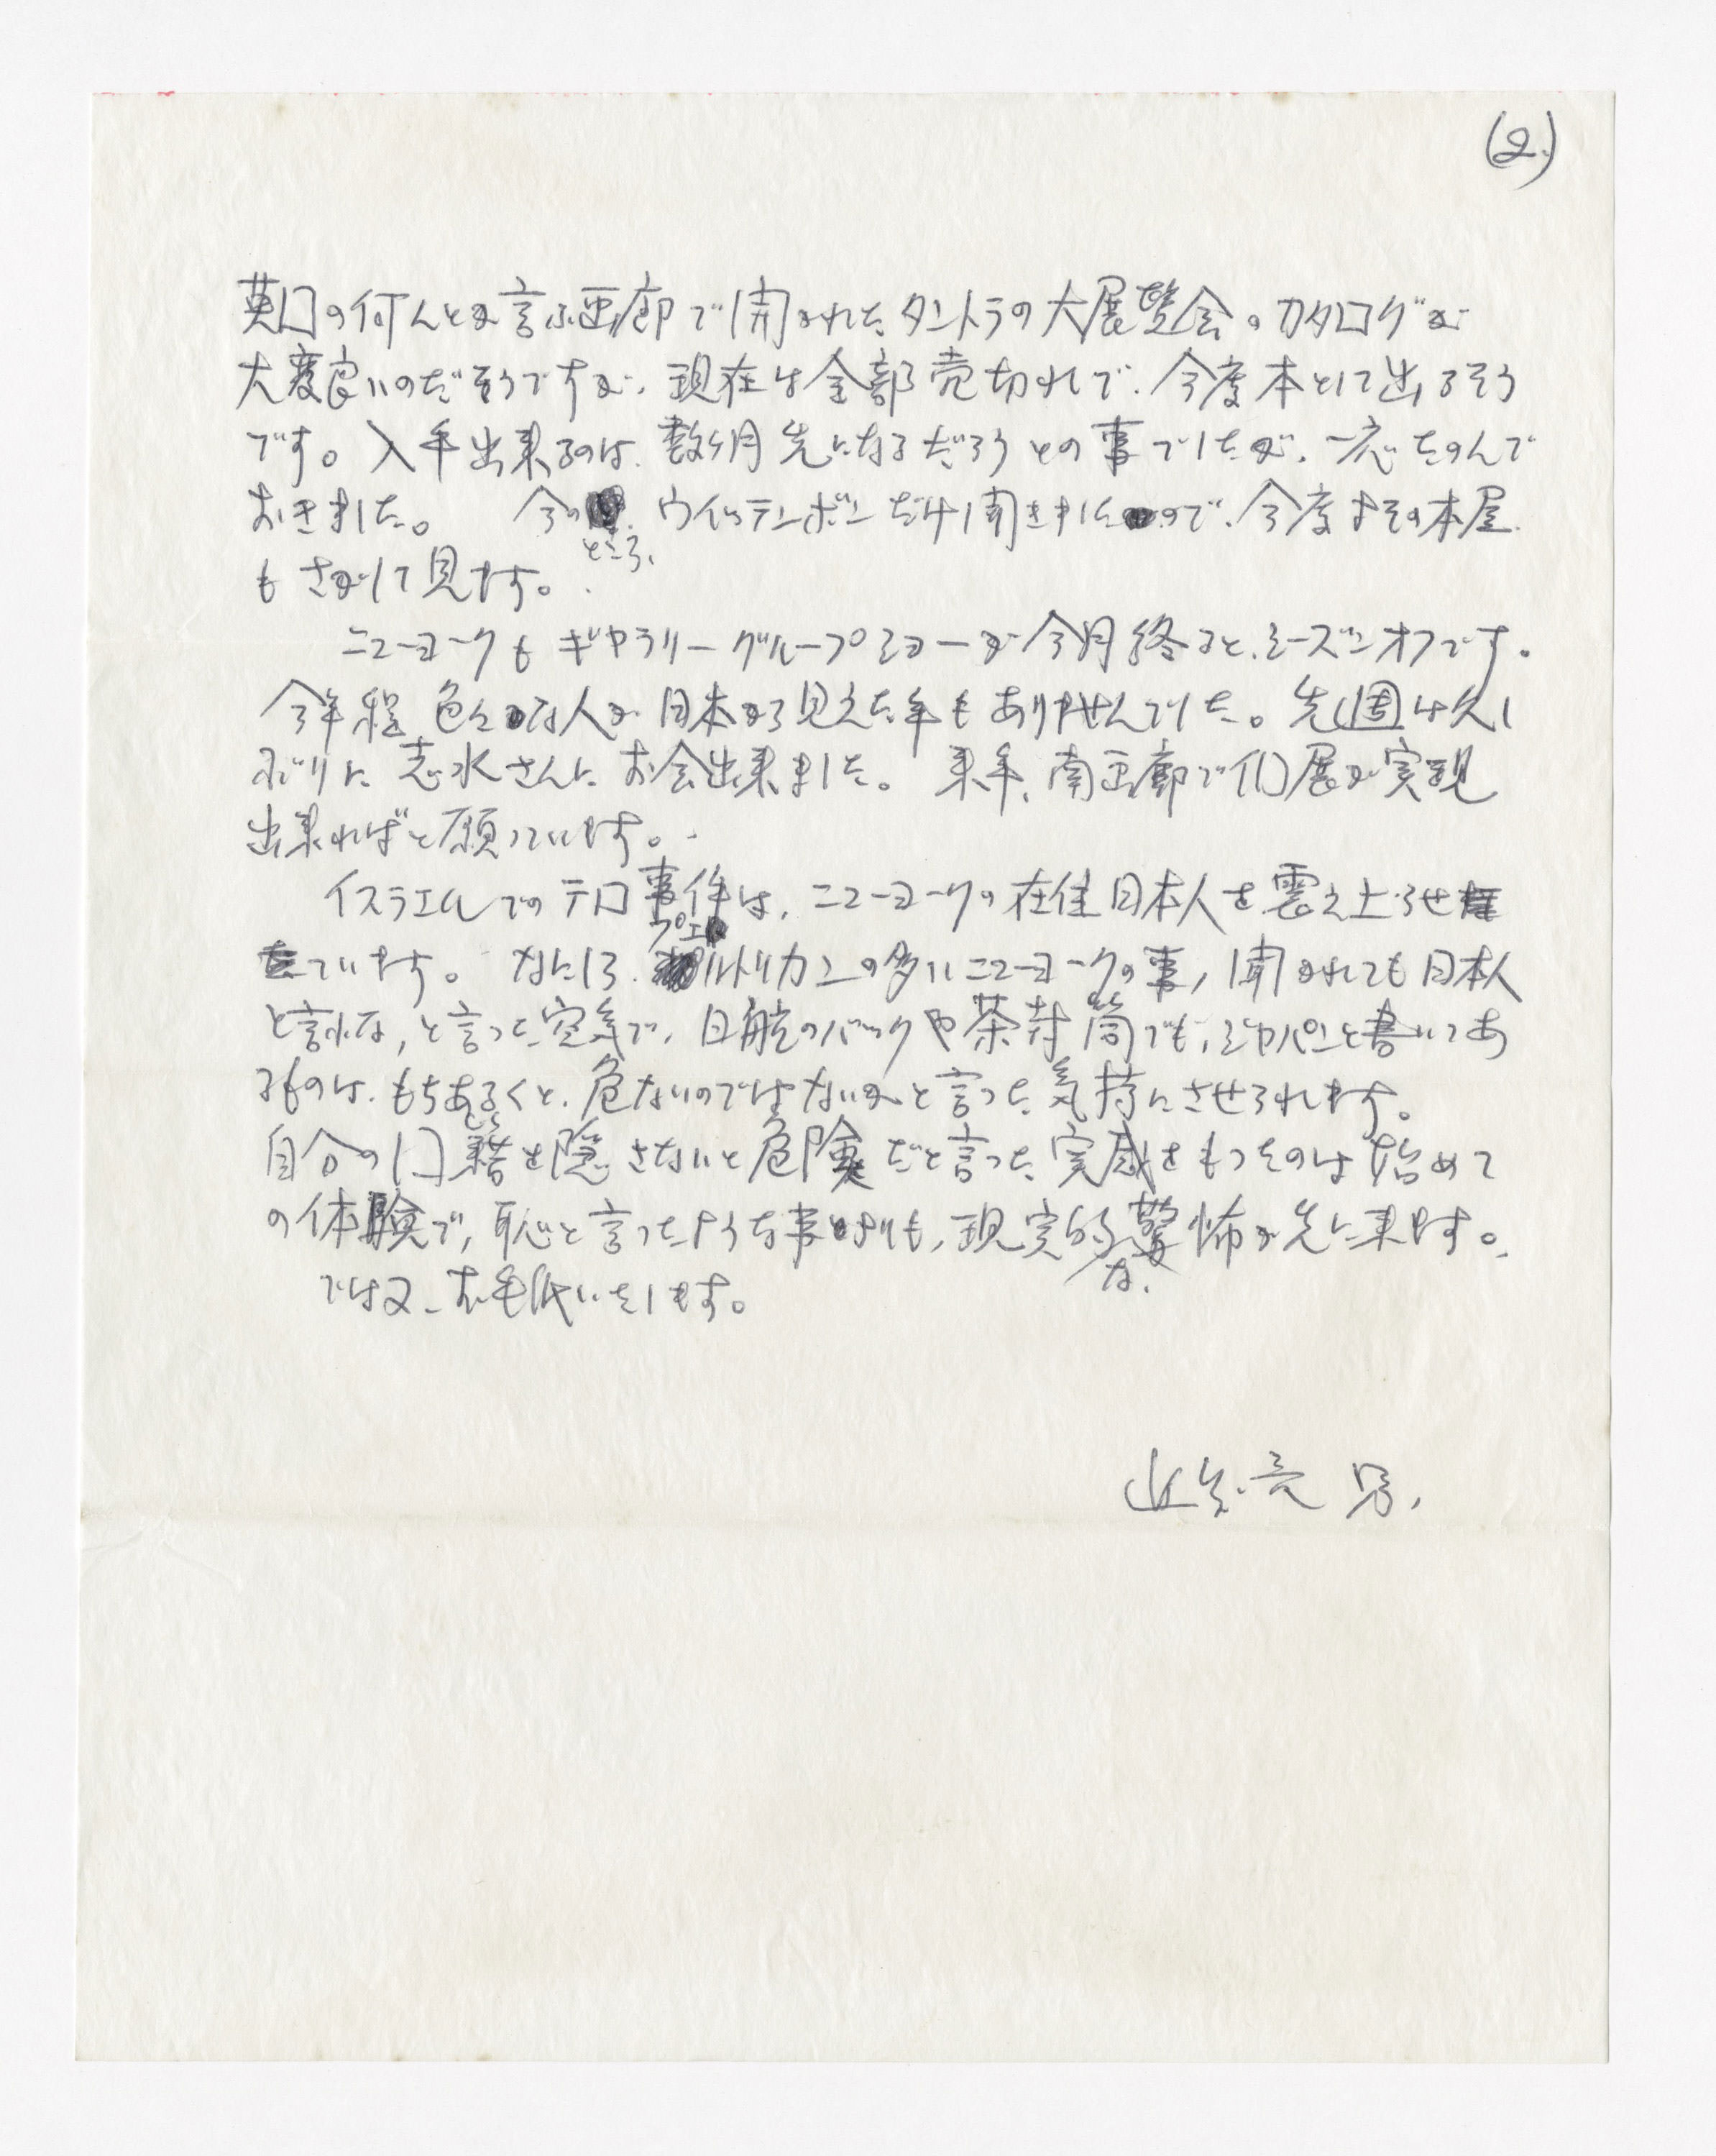 (2.)
英囗の何んとか言ふ画廊で開かれたタントラの大展覧会のカタログが
大変良いのだそうですが、現在は全部売切れで、今度本として出るそう
です。入手出来るのは、数ヶ月先になるだろうとの事でしたが、一応たのんで
おきました。 今のところ、ウイッテンボンだけ聞きましたので、今度まその本屋
もさがして見ます。
ニューヨークもギャラリーグループショーが今月終ると、シーズンオフです。
今年程色々な人が日本から見えた年もありませんでした。先週は久し
ぶりに志水さんにお会出来ました。 来年、南画廊で個展が実現
出来ればと願っています。
イスラエルでのテロ事件は、ニューヨークの在住日本人を震え上らせ
ています。 なにしろ、プエルトリカンの多いニューヨークの事、聞かれても日本人
と言うな、と言った空気で、日航のバックや茶封筒でも、ジャパンと書いてあ
るものは、もちあるくと、危ないのではないかと言った気持にさせられます。
自分の囗籍を隠さないと危険だと言った実感をもつたのは始めて
の体験で、恥と言ったような事よりも、現実的な驚怖が先に来ます。
では又、お手紙いたします。